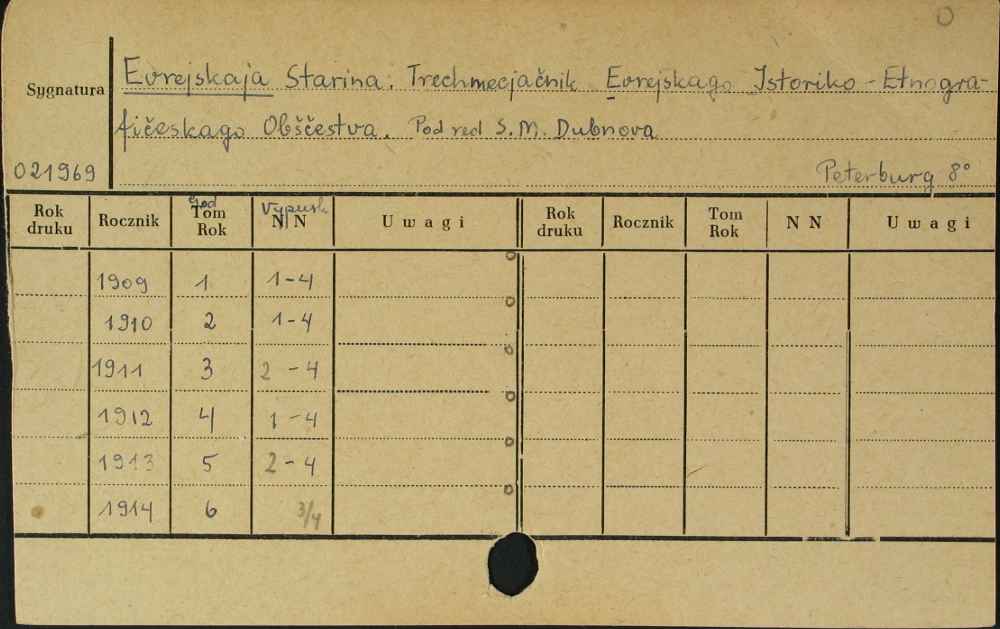 Sygnatura
Evrejskaja Starina. Trechmecjačnik Evrejskago Istoriko-Etnogra-
fičeskago Obščestva. Pod red S.M. Dubnova
021969 Peterburg 8°
Rok druku Rocznik God Tom Rok Vypusk NN Uwagi Rok druku Rocznik Tom Rok NN Uwagi
1909 1 1-4
1910 2 1-4
1911 3 2-4
1912 4 1-4
1913 5 2-4
1914 6 3/4